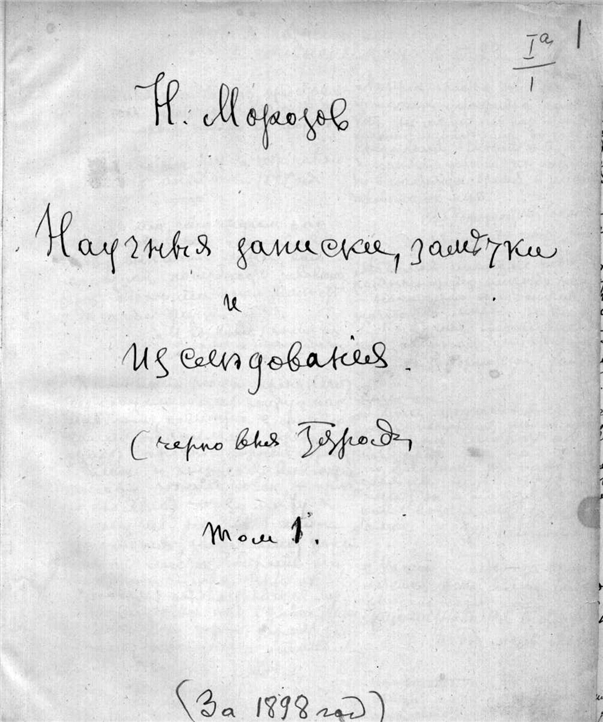 1
Iа
1
Н. Морозов
Научныя записки, замѣтки
и
изслѣдованія.
(черновыя Тетради)
том 1.
(За 1898 год)